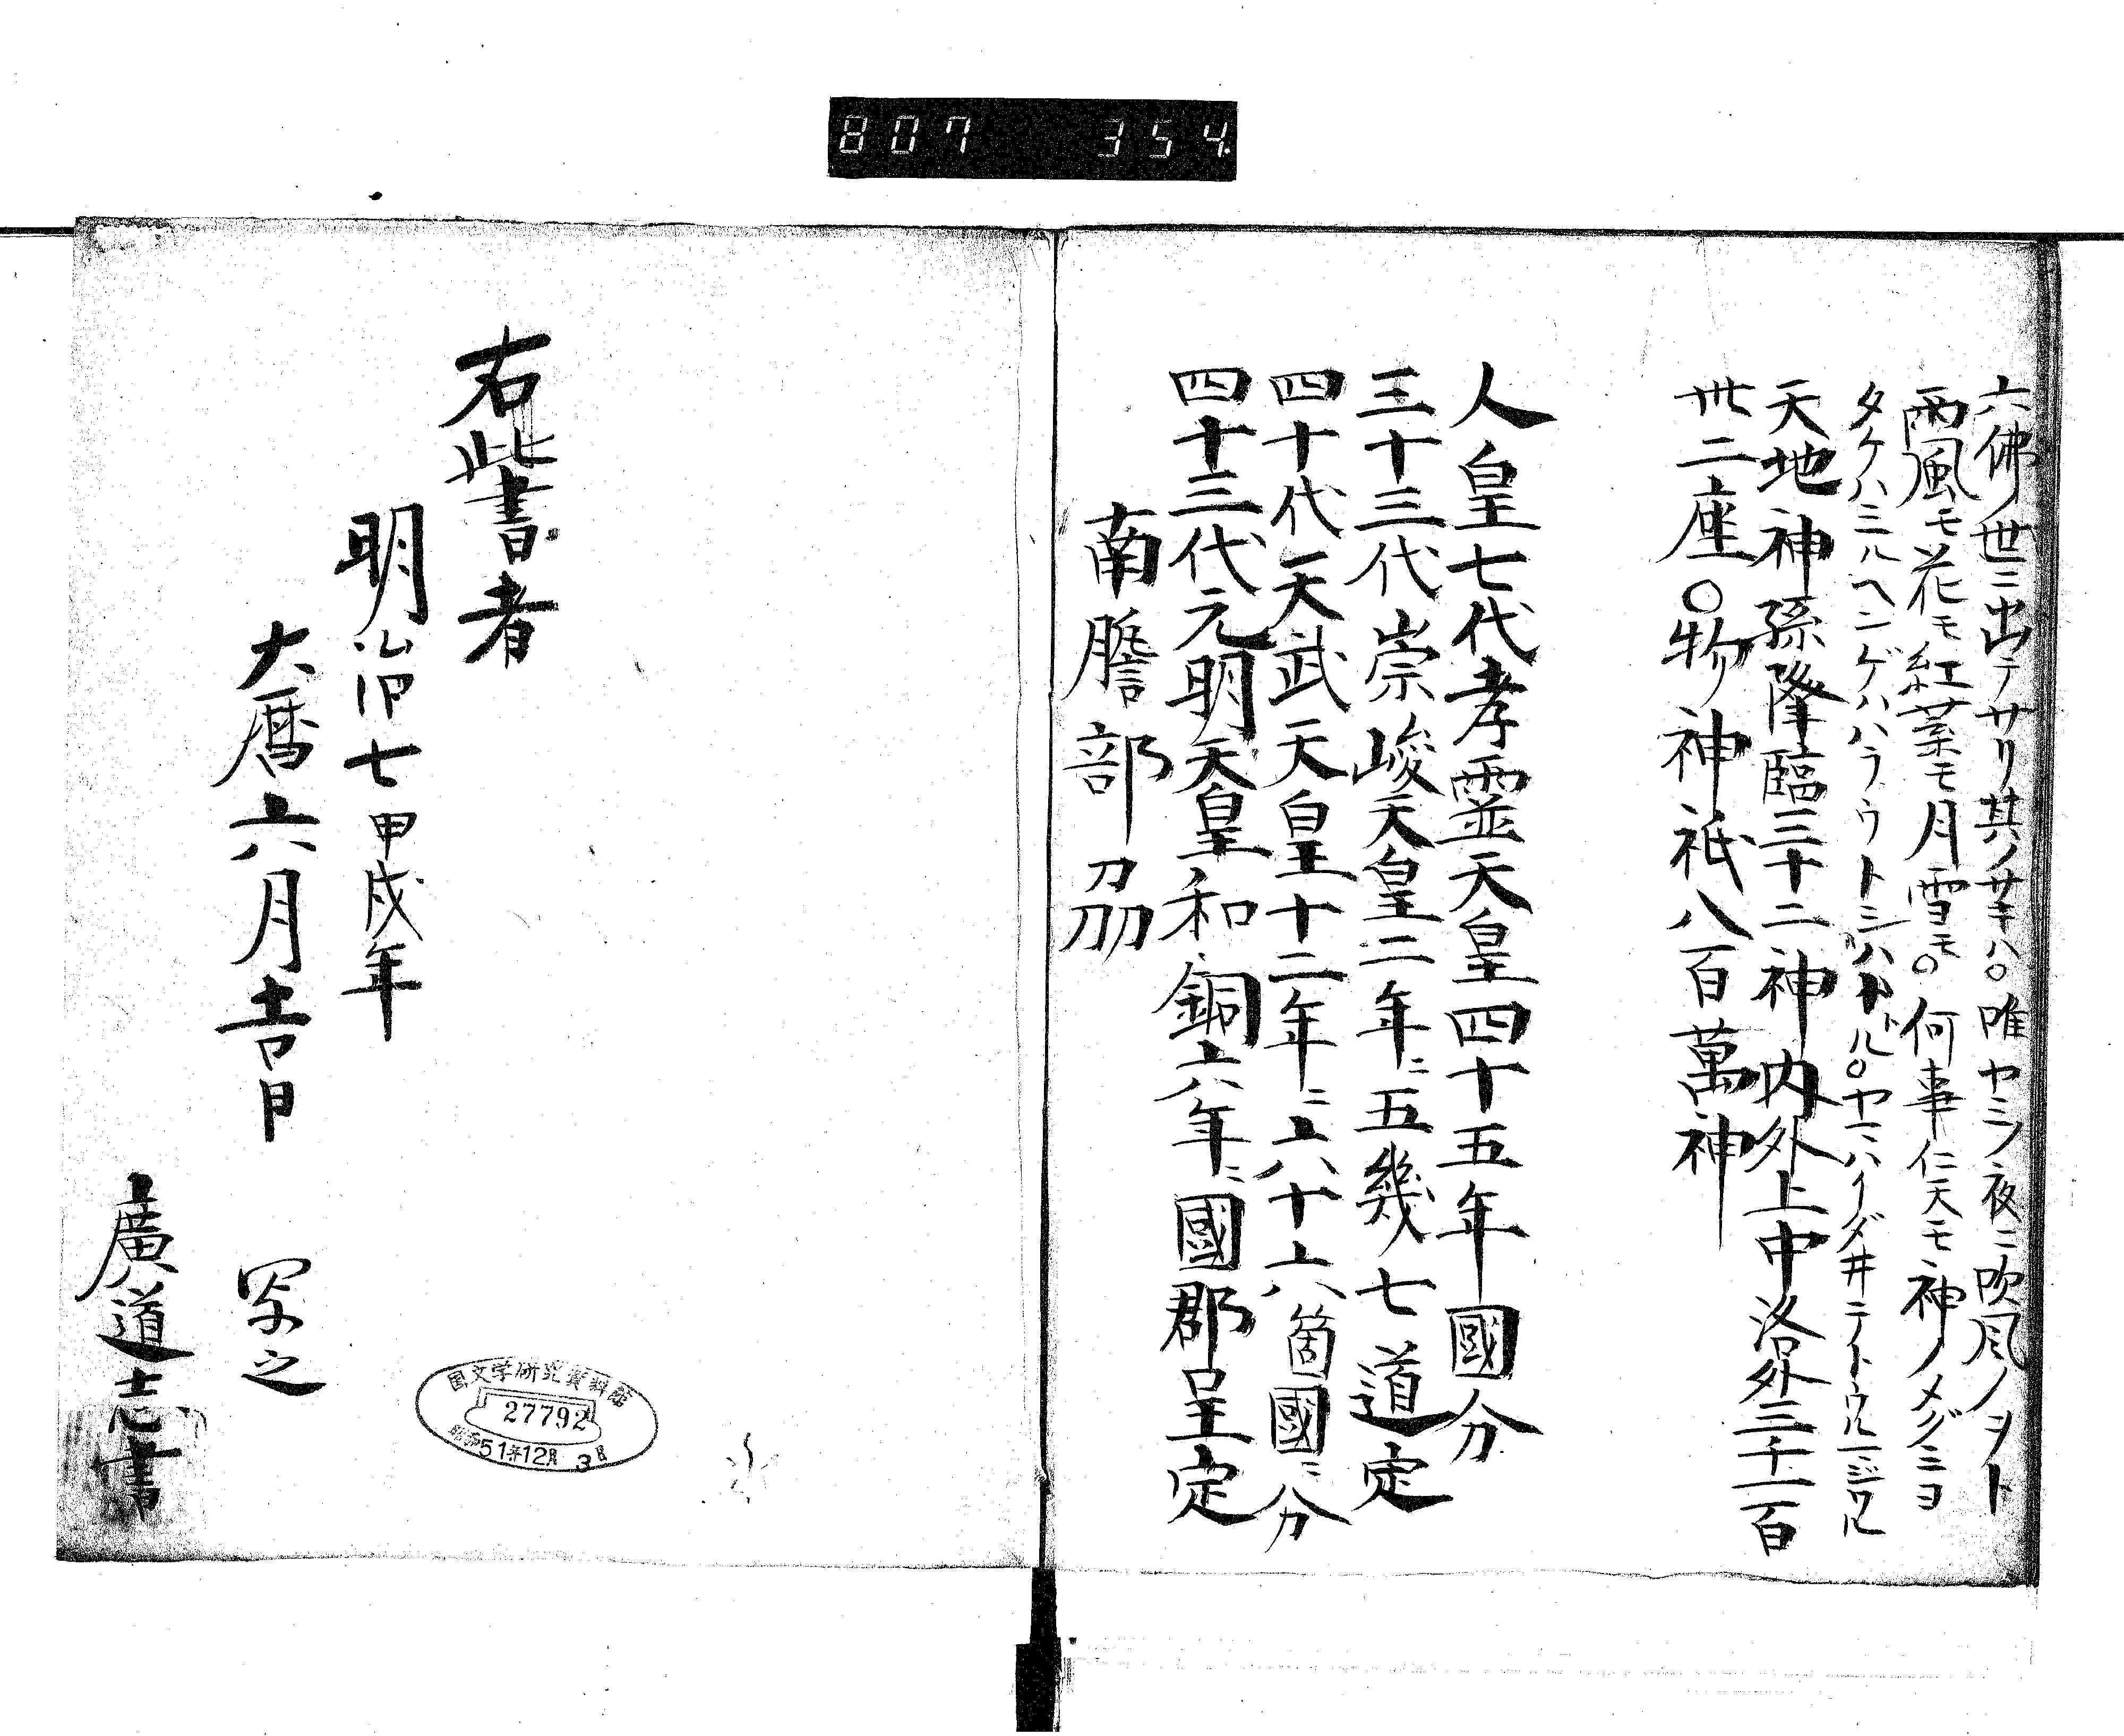 807 354
六佛ノ世ニ出テサリ其ノサキハ〇唯ヤミノ夜ニ吹風ノヲト
雨風モ花モ紅葉モ月雪モ〇何事仁天モ神ノメグミヨ
タケハミルヘニゲハハラウトミハ
天地神孫降臨三十二神内外上中洛外三千一百
卅二座〇物神祇八百萬神
人皇七代孝霊天皇四十五年國分
三十三代崇峻天皇二年ニ五幾七道定
四十代天武天皇十二年ニ六十六箇國ニ分
四十三代元明天皇和銅六年ニ國郡呈定
南膽部刕
右此書者
明治七甲戌年
大暦六月吉日 写之
廣道志書
国文学研究資料館
27792
昭和51年12月3日